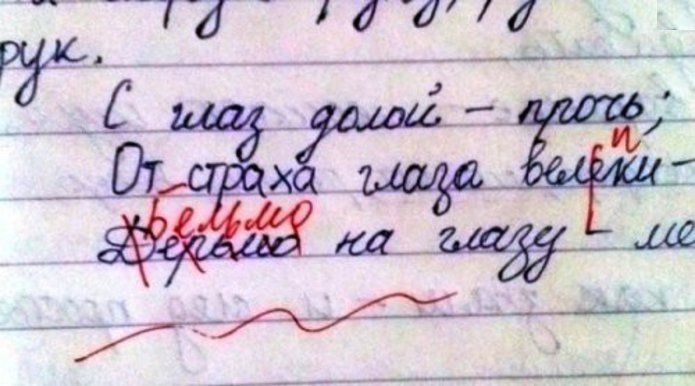 рук.
С глаз долой – прочь;
п
От страха глаза велеки –
бельмо
Дерьмо на глазу – ме